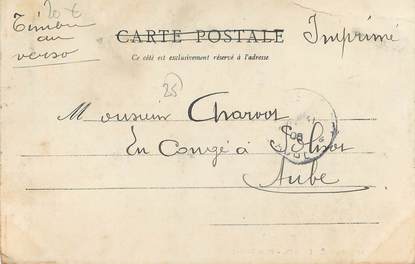 20 €
Timbre
au
verso
CARTE POSTALE
Imprimé
Ce côté est exclusivement réservé à l'adresse
25
Monsieur Charvot
En Congé à
Aube